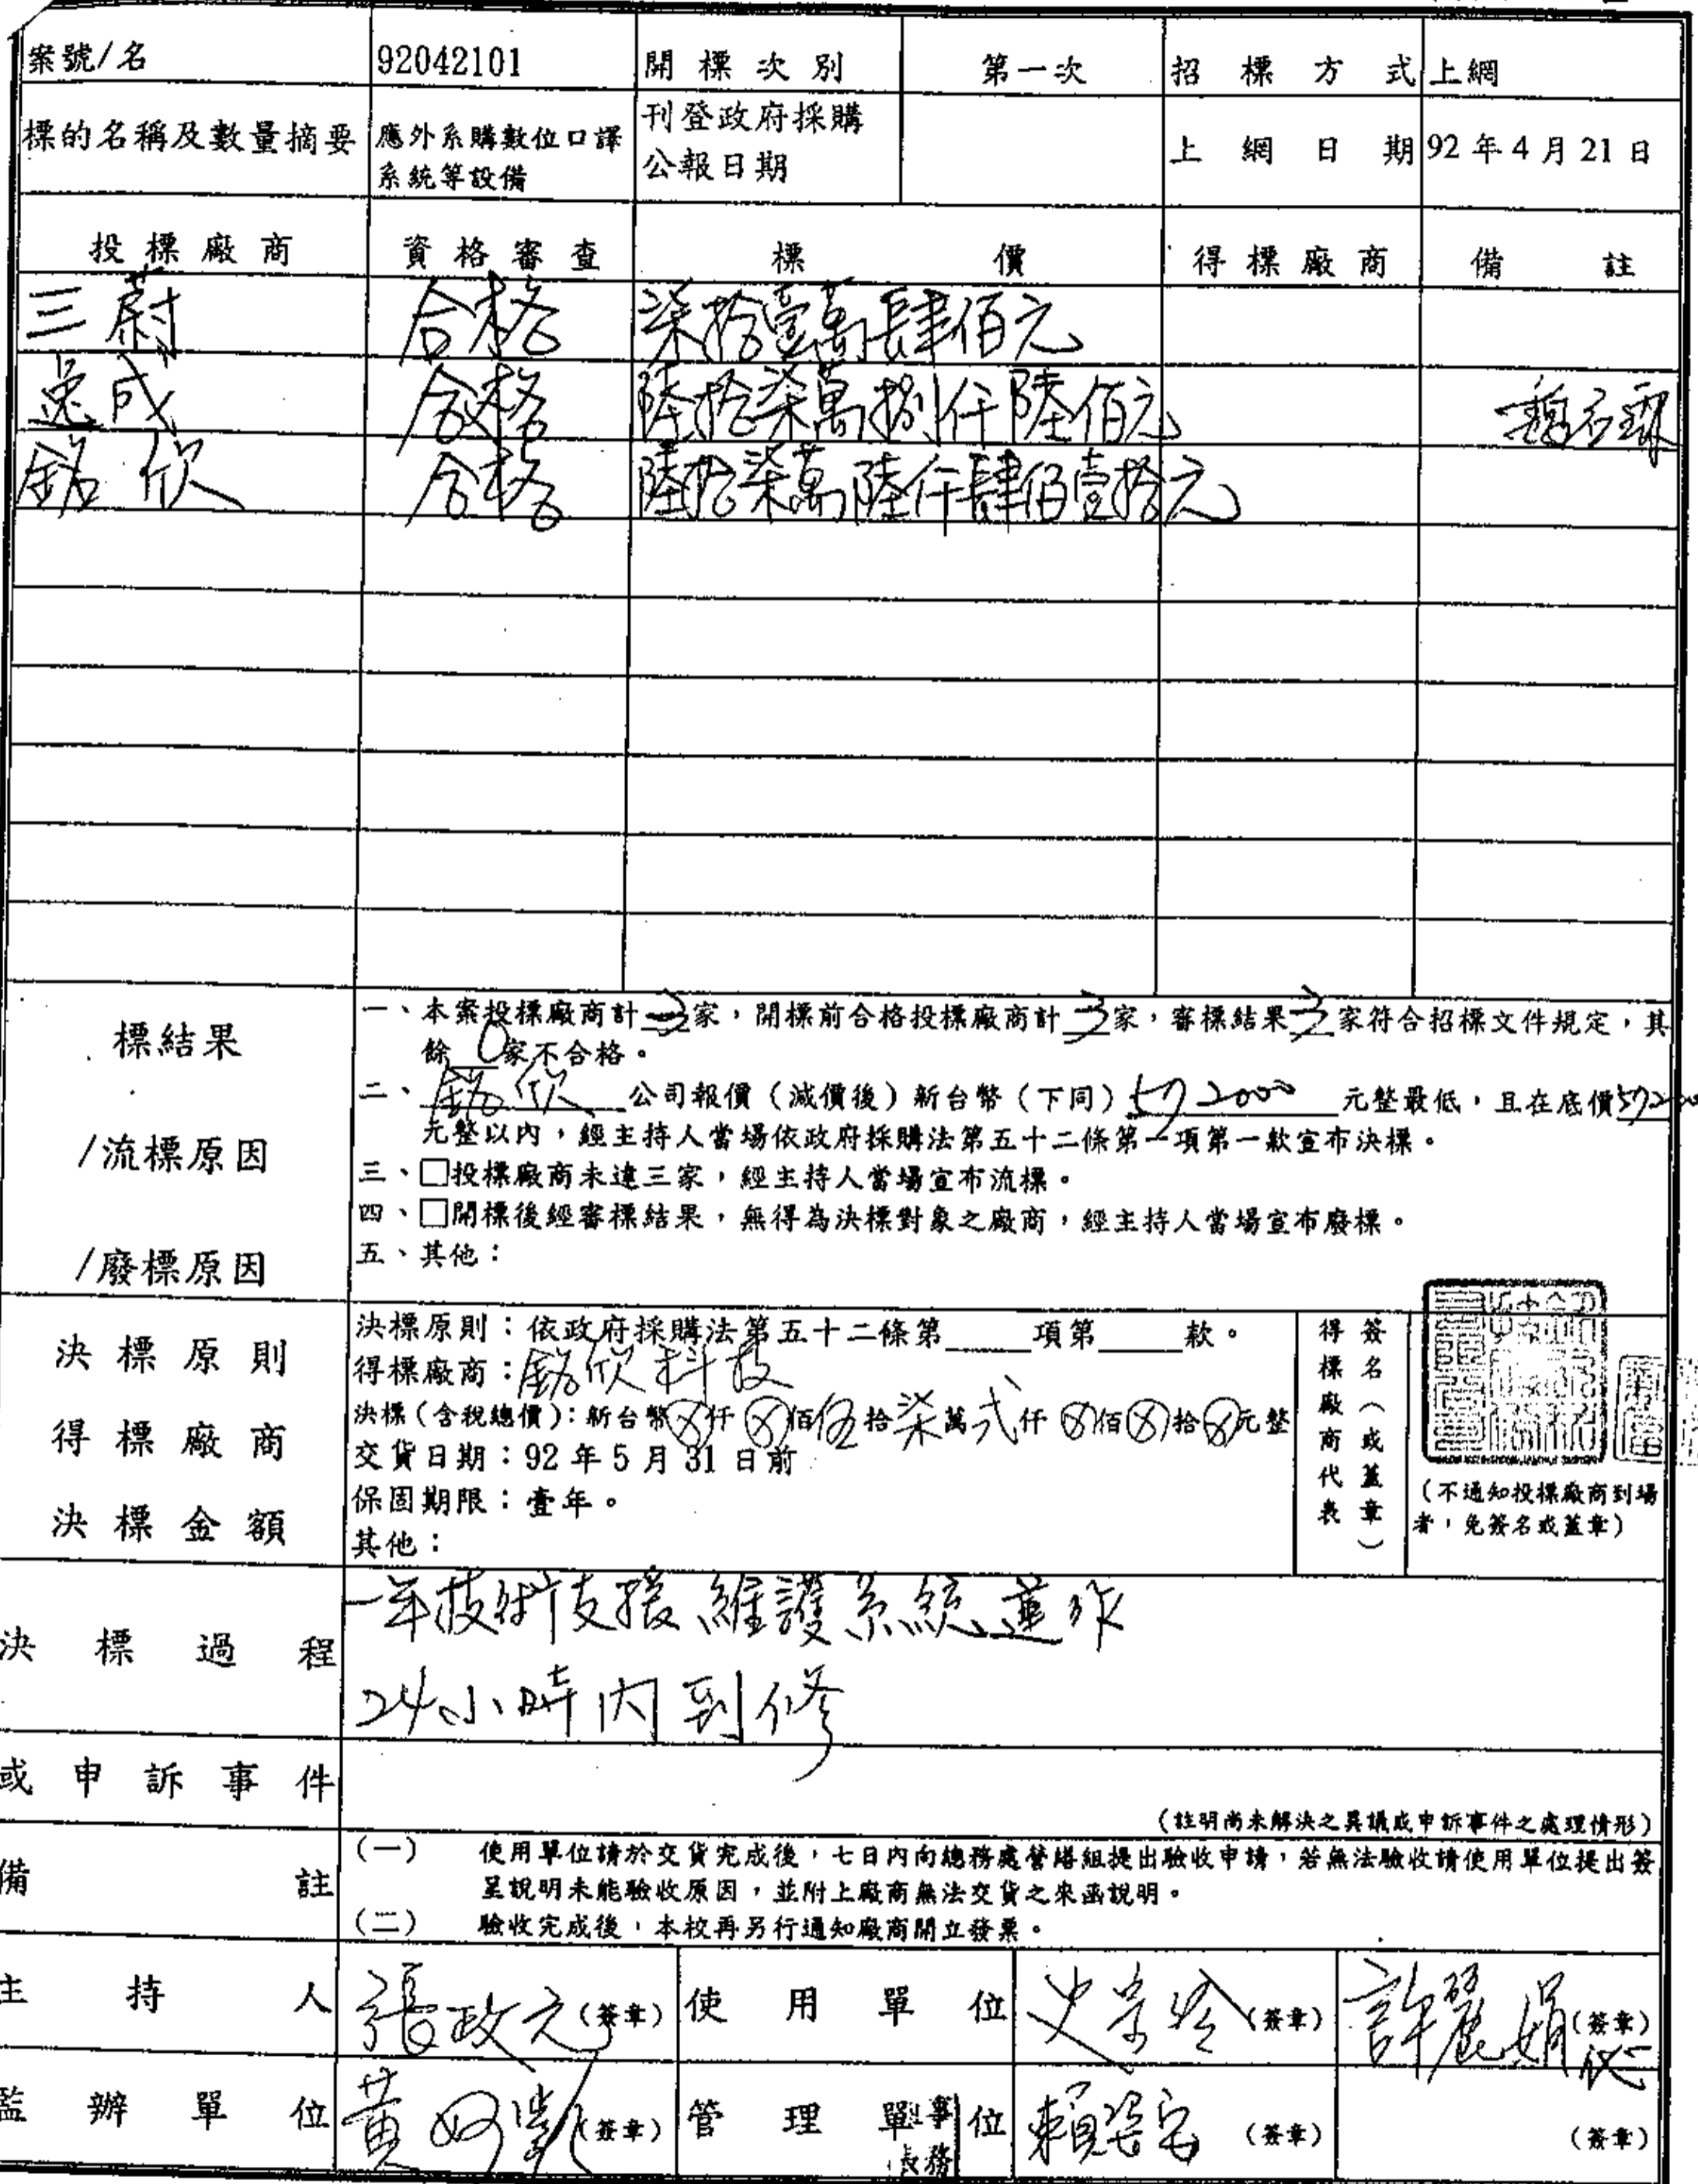 案號/名 92042101 開標次別 第一次 招標方式 上網
標的名稱及數量摘要 應外系購數位口譯系統等設備 刊登政府採購公報日期 上網日期 92年4月21日
投標廠商 資格審查 標價 得標廠商 備註
三蔚 合格 柒拾壹萬肆佰元
逸成 合格 陸拾柒萬捌仟陸佰元
銘欣 合格 陸拾柒萬陸仟肆佰壹拾元
標結果
/流標原因
/廢標原因
一、本案投標廠商計3家,開標前合格投標廠商計3家,審標結果3家符合招標文件規定,其
餘0家不合格。
二、銘欣公司報價(減價後)新台幣(下同)572000元整最低,且在底價
元整以內,經主持人當場依政府採購法第五十二條第一項第一款宣布決標。
三、□投標廠商未達三家,經主持人當場宣布流標。
四、□開標後經審標結果,無得為決標對象之廠商,經主持人當場宣布廢標。
五、其他:
決標原則
得標廠商
決標金額
決標原則:依政府採購法第五十二條第 項第 款。
得標廠商:銘欣科技
決標(含稅總價):新台幣⊗仟⊗佰伍拾柒萬弍仟⊗佰⊗拾⊗元整
交貨日期:92年5月31日前
保固期限:壹年。
其他:
得標廠商代表
簽名(或蓋章)
(不通知投標廠商到場
者,免簽名或蓋章)
決標過程
一年技術支援維護系統運作
24小時內到修
或申訴事件
(註明尚未解決之異議或申訴事件之處理情形)
備註
(一) 使用單位請於交貨完成後,七日內向總務處營繕組提出驗收申請,若無法驗收請使用單位提出簽
呈說明未能驗收原因,並附上廠商無法交貨之來函說明。
(二) 驗收完成後,本校再另行通知廠商開立發票。
主持人 張政元(簽章) 使用單位 (簽章) 許麗娟(簽章)
監辦單位 黃(簽章) 管理單位 賴(簽章) (簽章)